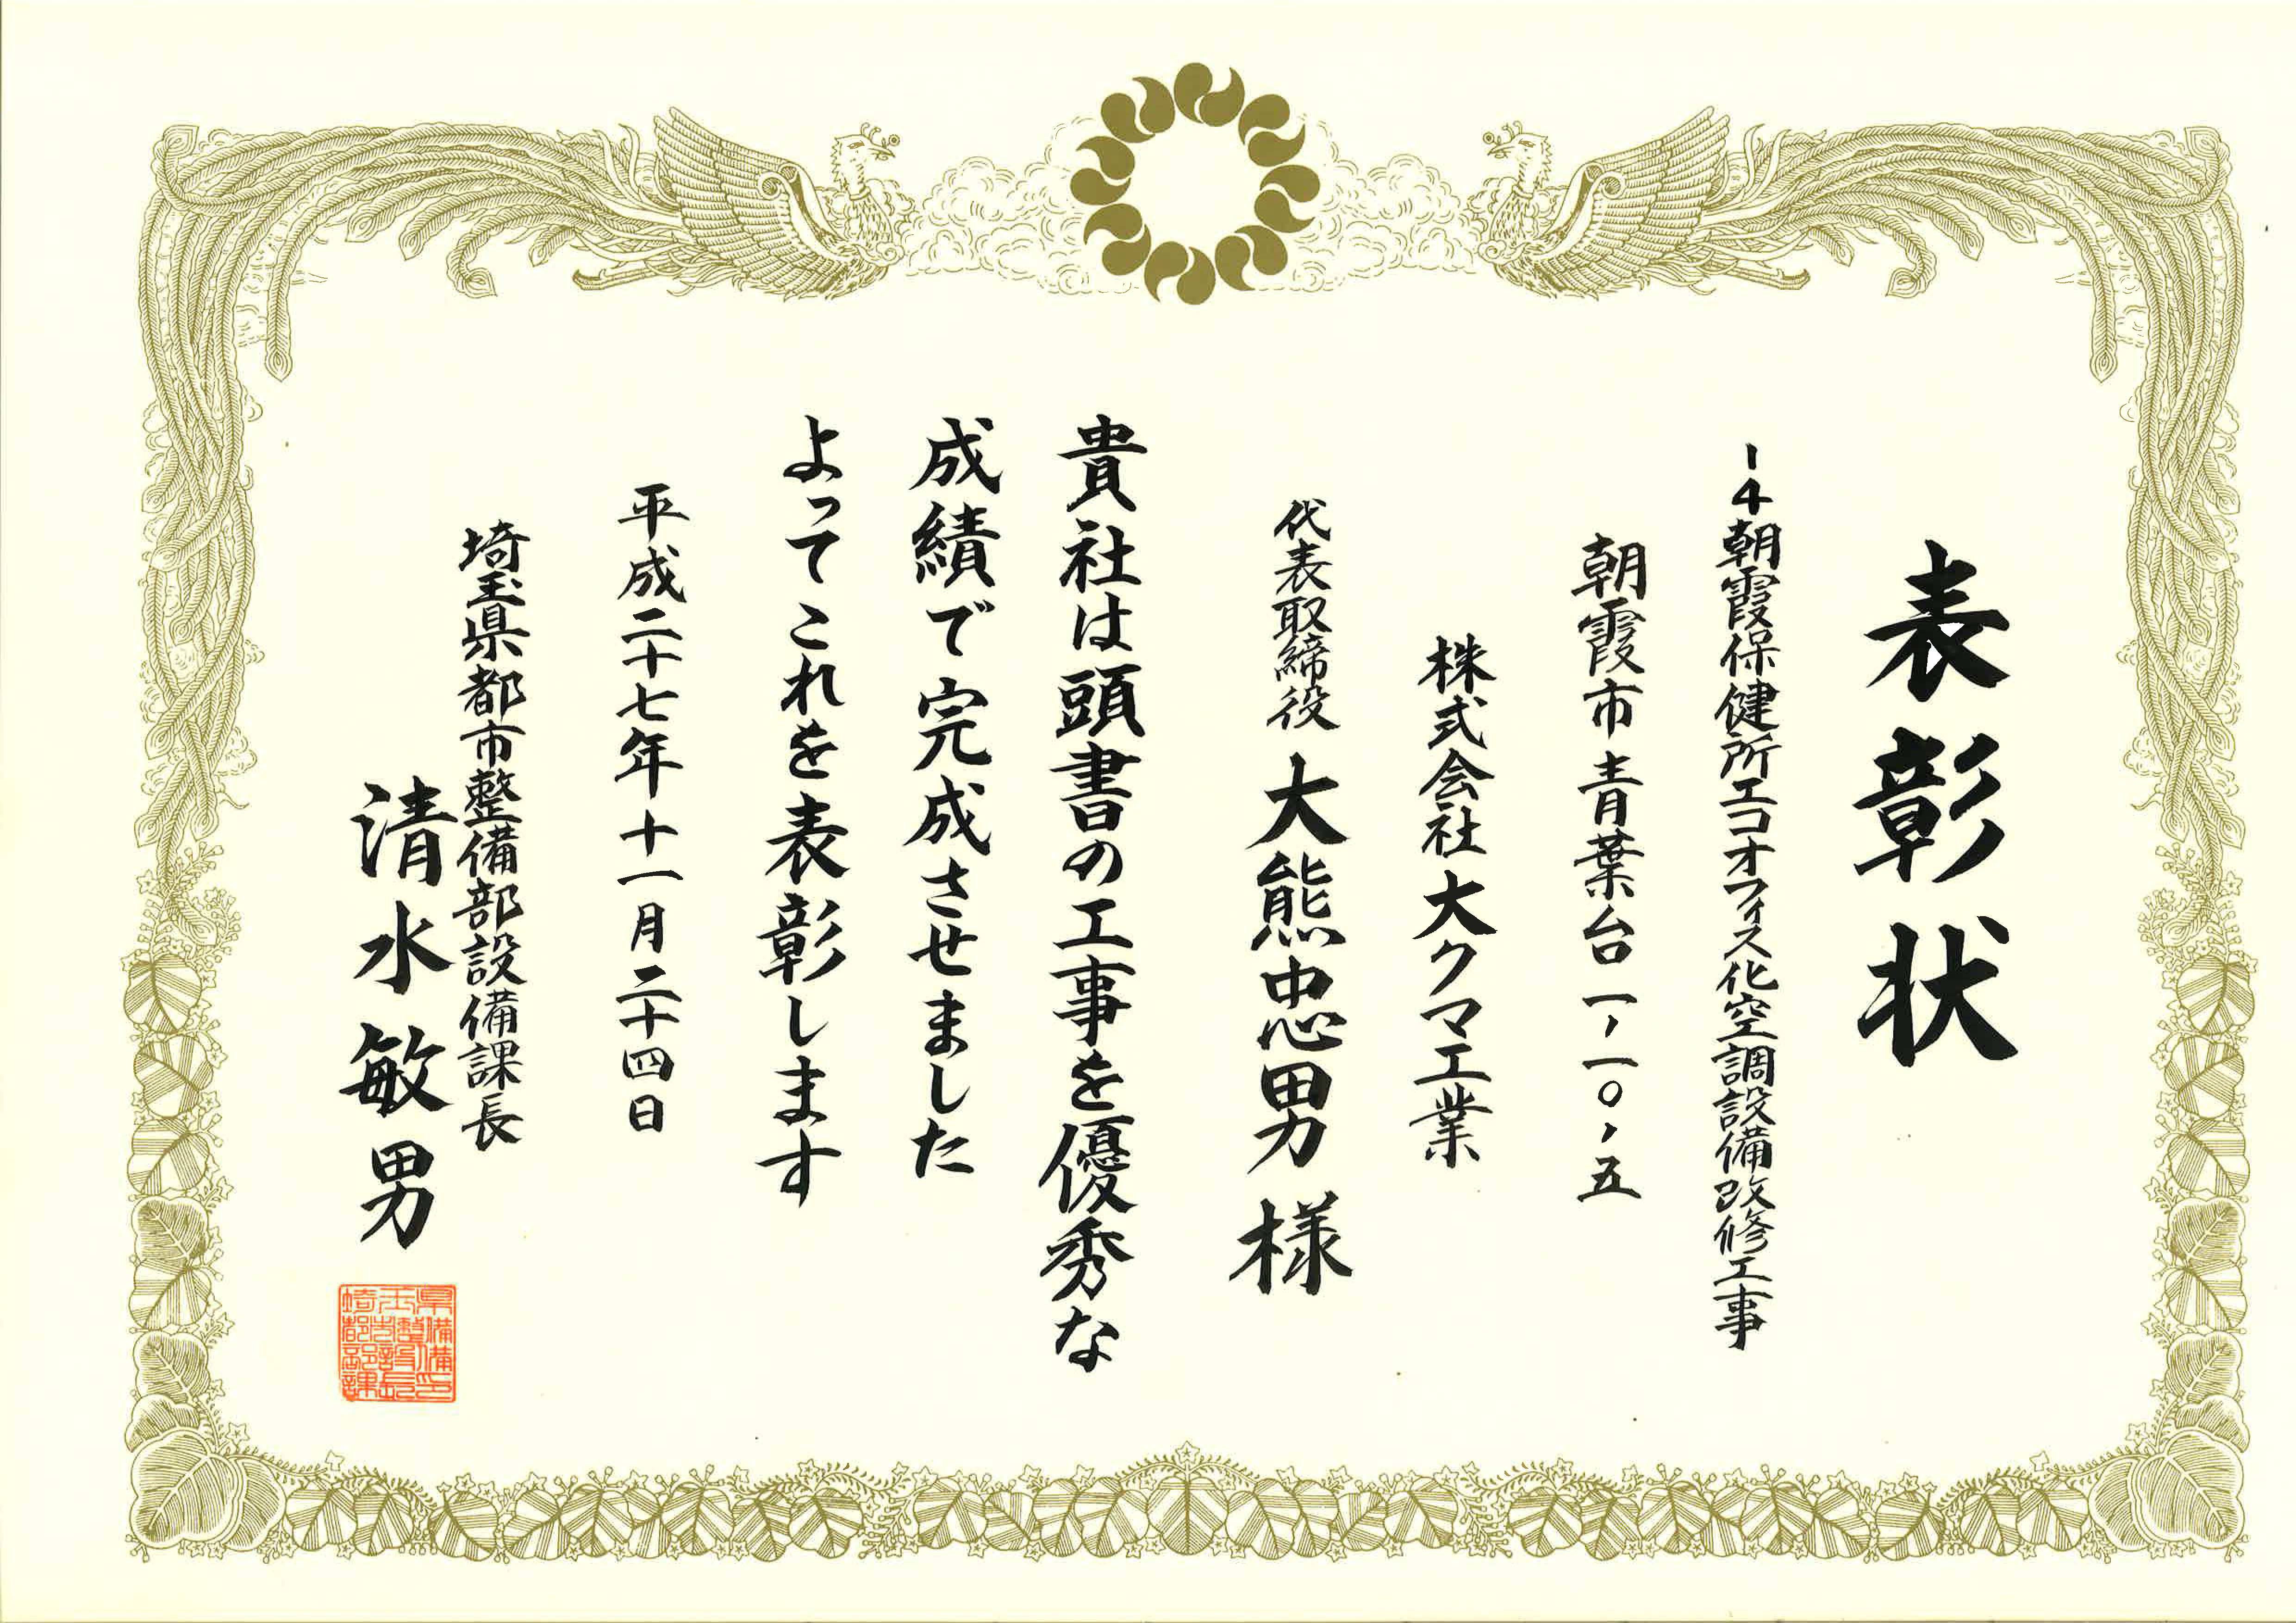 表彰状
14朝霞保健所エコオフィス化空調設備改修工事
朝霞市青葉台一ー一〇ー五
株式会社大クマ工業
代表取締役 大熊忠男様
貴社は頭書の工事を優秀な
成績で完成させました
よってこれを表彰します
平成二十七年十一月二十四日
埼玉県都市整備部設備課長
清水敏男
埼玉県
都市整備
部設備
課長印